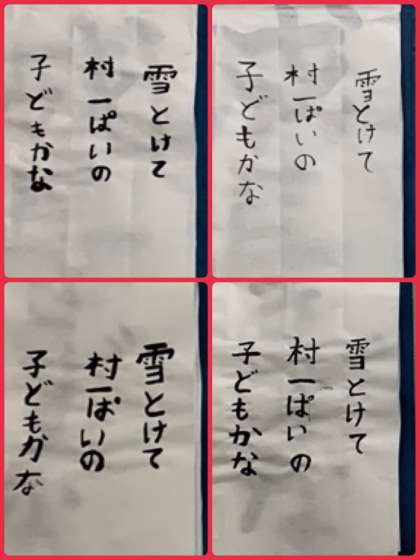 雪とけて
村一ぱいの
子どもかな
雪とけて
村一ぱいの
子どもかな
雪とけて
村一ぱいの
子どもかな
雪とけて
村一ぱいの
子どもかな